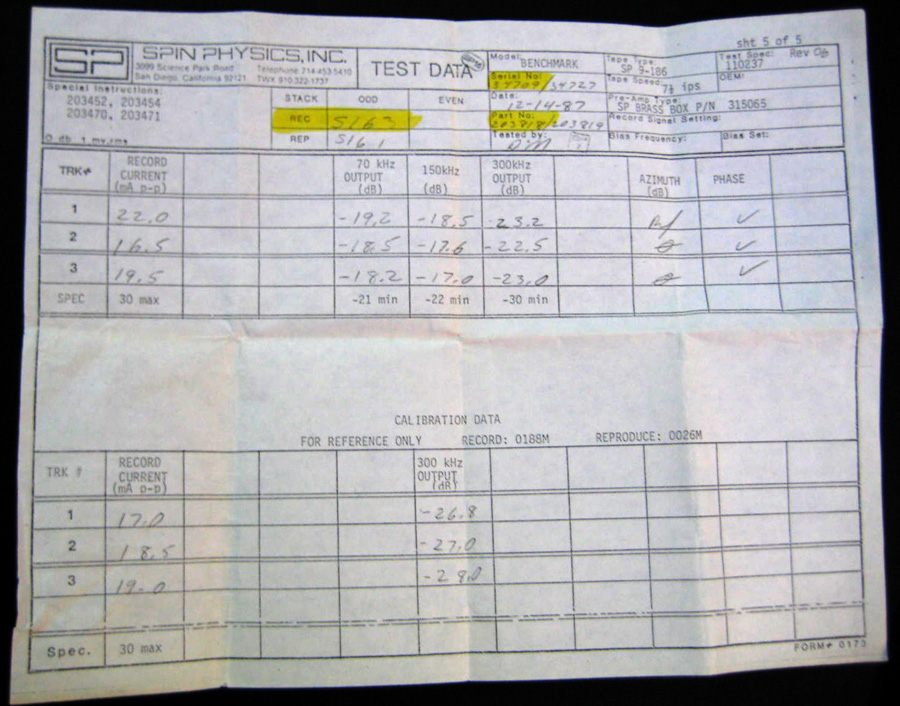 sht 5 of 5
SP SPIN PHYSICS, INC.
3099 Science Park Road Telephone 714-453-5410
San Diego, California 92121 TWX 910-322-1737
TEST DATA
Model:
BENCHMARK
Serial No:
34709/34727
Date:
12-14-87
Part No:
203818/203819
Tested by:
Tape Type:
SP 9-186
Tape Speed:
7½ ips
Pre-Amp Type:
SP BRASS BOX P/N 315065
Record Signal Setting:
Bias Frequency:
Bias Set:
Test Spec: Rev
110237
OEM:
Special Instructions:
203452, 203454
203470, 203471
O db 1 mv.rms
STACK ODD EVEN
REC S163
REP S161
TRK# RECORD CURRENT (mA p-p) 70 kHz OUTPUT (dB) 150kHz 300kHz OUTPUT (dB) AZIMUTH (dB) PHASE
1 22.0 -19.2 -18.5 -23.2 ✓
2 16.5 -18.5 -17.6 -22.5 ✓
3 19.5 -18.2 -17.0 -23.0 ✓
SPEC 30 max -21 min -22 min -30 min
CALIBRATION DATA
FOR REFERENCE ONLY RECORD: 0188M REPRODUCE: 0026M
TRK # RECORD CURRENT (mA p-p) 300 kHz OUTPUT (dB)
1 17.0 -26.8
2 18.5 -27.0
3 19.0 -28.0
Spec. 30 max
FORM# 0173